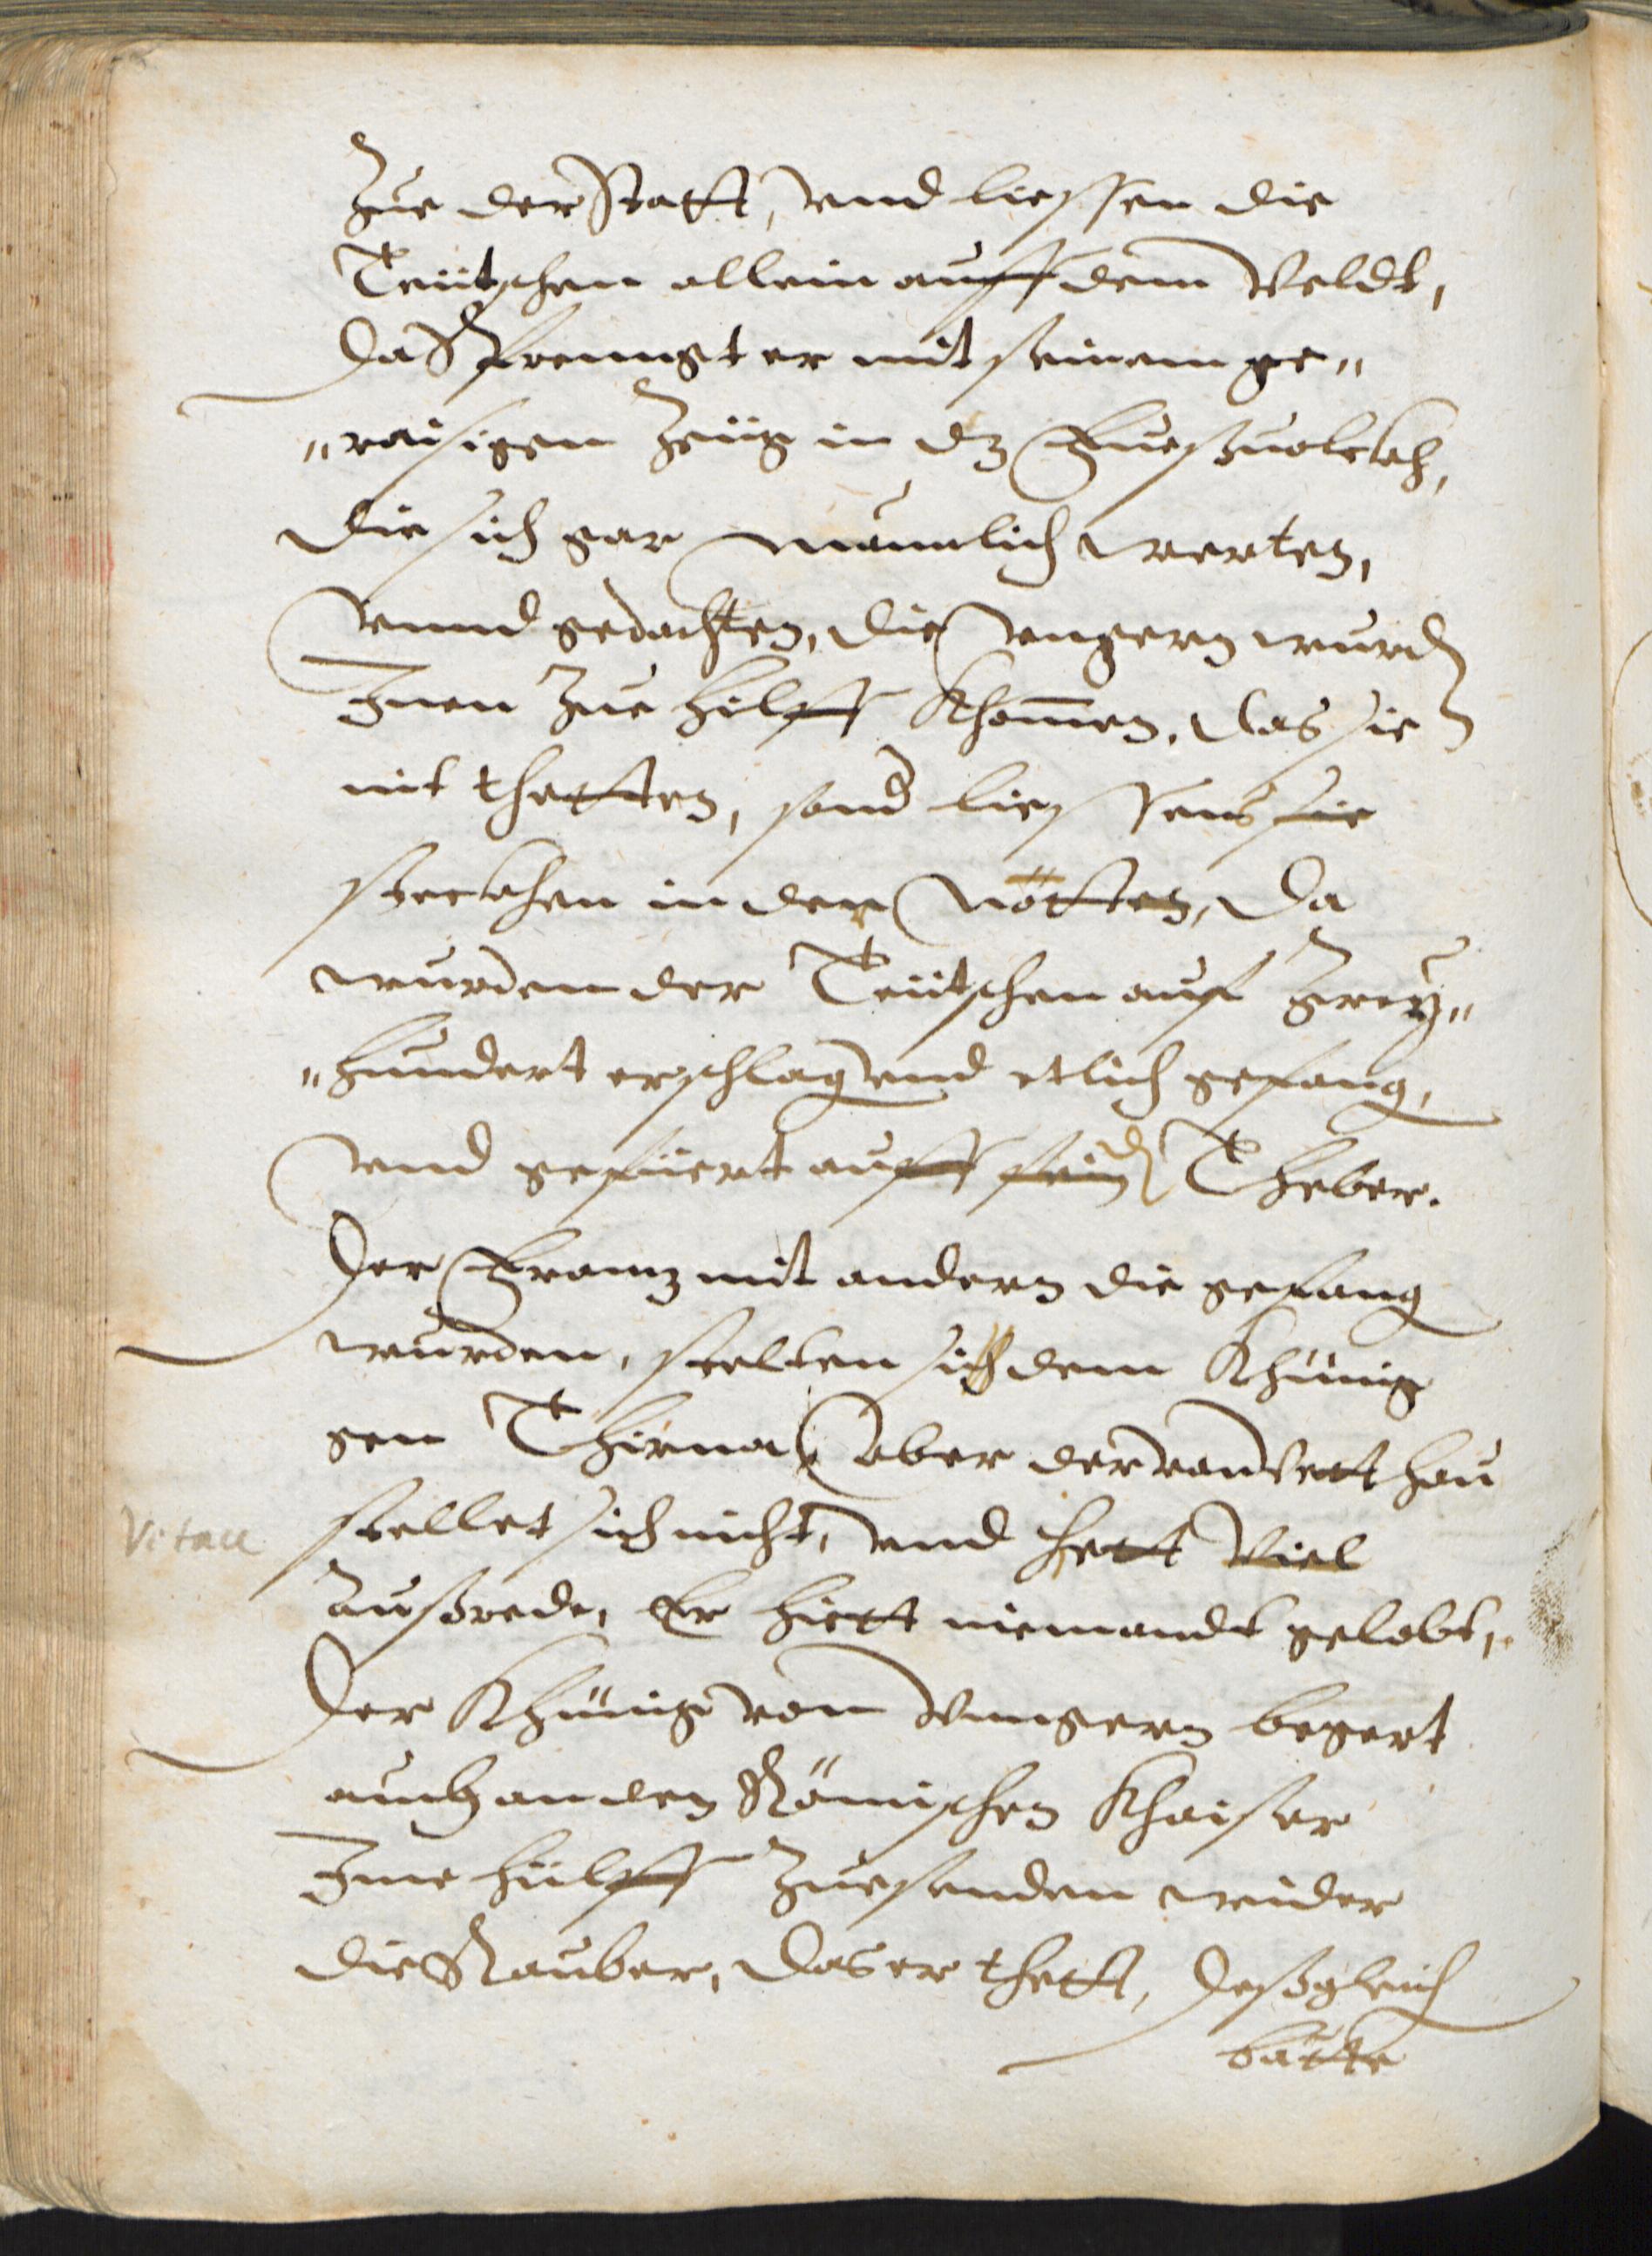 Zue der Statt, vnd liessen die
Teütschen allein auff dem Veldt,
Da Sprenngt er mit seinem ge„
„raisigen Zeüg in dz Fueszuolckh,
die sich gar männlich werten,
vnnd gedachten, die vngern wurdn
Inen Zue hilff Khomen. das sie
nit thetten, sond liessens sie
steckhen in den nötten, Da
wurden der Teütschen auf Zwey„
„hundert erschlagn vnd etlich gefang,
vnd gefüert auff sein Theber.
Der Franz mit andern die gefang
wurden, stelten sich dem Khünig
gen Thirna, Aber der von Vett hau
Vitau
stellet sich nicht, vnd hett viel
Außrede, Er hiett niemandt gelobt,
Der Khünig von Vngern begert
auch an den Römischen Khaiser
Ime hülff Zuesenden wider
die Rauber, das er thett, Deßgleich
bätte